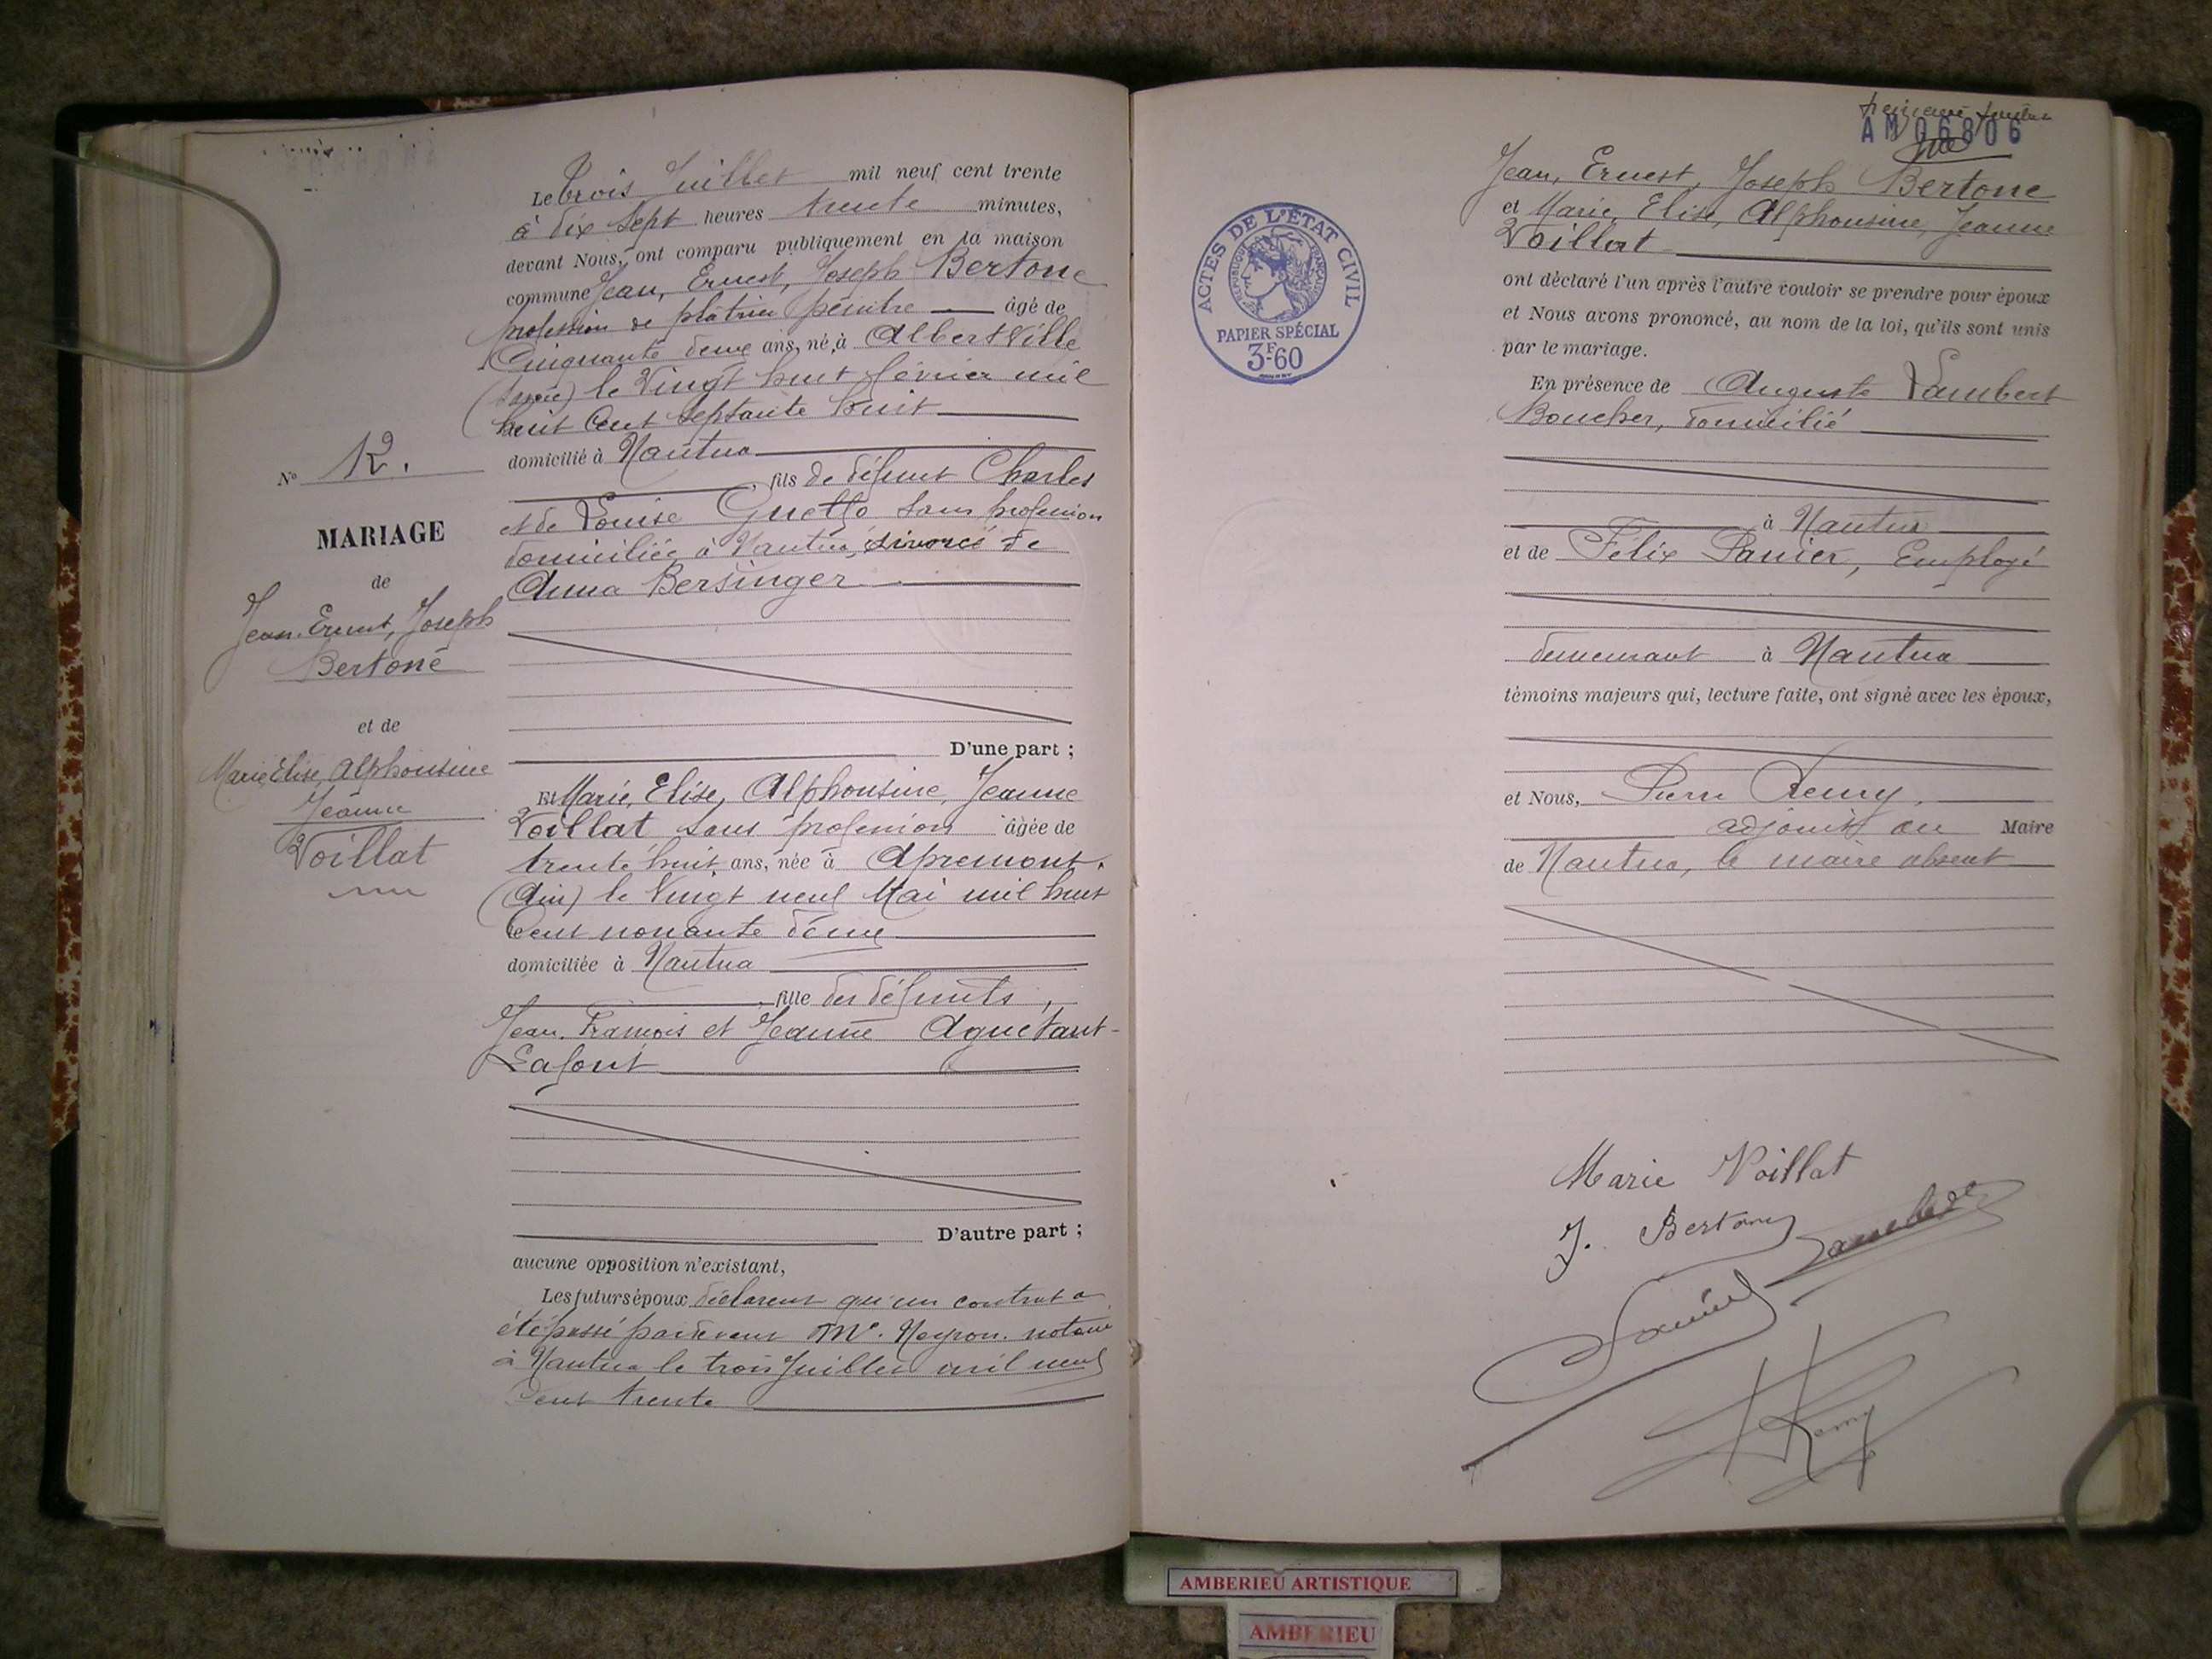 N° 12.
MARIAGE
de
Jean, Ernest, Joseph
Bertone
et de
Marie, Elise, Alphonsine
Jeanne
Voillat
Le trois Juillet mil neuf cent trente
à dix sept heures trente minutes,
devant Nous, ont comparu publiquement en la maison
commune Jean, Ernest, Joseph Bertone
profession de plâtrier peintre âgé de
Cinquante deux ans, né à Albertville
(Savoie) le Vingt huit février mil
huit Cent septante huit
domicilié à Nantua
fils de défunt Charles
et de Louise Guetto sans profession
domiciliée à Nantua, divorcé de
Anna Bersinger
D'une part ;
Et Marie, Elise, Alphonsine, Jeanne
Voillat sans profession âgée de
trente huit ans, née à Apremont
(Ain) le Vingt neuf Mai mil huit
Cent nonante deux
domiciliée à Nantua
fille des défunts,
Jean. François et Jeanne Aguetant-
Lafont
D'autre part ;
aucune opposition n'existant,
Les futurs époux déclarent qu'un contrat a
été passé pardevant Me. Neyron. notaire
à Nantua le trois Juillet mil neuf
Cent trente
AM 06806
Jean, Ernest, Joseph Bertone
et Marie, Elise, Alphonsine, Jeanne
Voillat
ont déclaré l'un après l'autre vouloir se prendre pour époux
et Nous avons prononcé, au nom de la loi, qu'ils sont unis
par le mariage.
En présence de Auguste Lambert
Boucher, domicilié
à Nantua
et de Félix Panier, Employé
demeurant à Nantua
témoins majeurs qui, lecture faite, ont signé avec les époux,
et Nous, Pierre Remy,
adjoint au Maire
de Nantua, le maire absent
ACTES DE L'ÉTAT CIVIL
RÉPUBLIQUE FRANÇAISE
PAPIER SPÉCIAL
3F.60
Marie Voillat
J. Bertone
Remy
AMBERIEU ARTISTIQUE
AMBERIEU